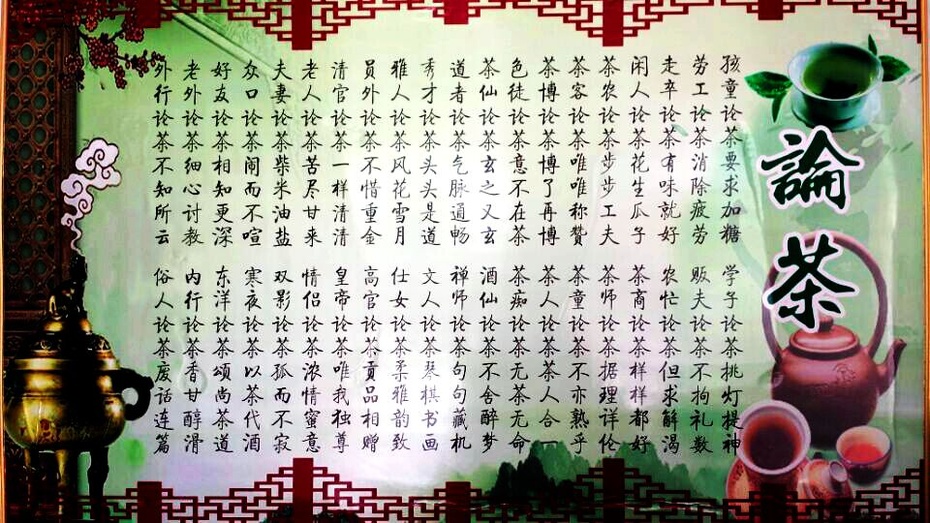 論茶
孩童论茶要求加糖 学子论茶挑灯提神
劳工论茶消除疲劳 贩夫论茶不拘礼数
走卒论茶有味就好 农忙论茶但求解渴
闲人论茶花生瓜子 茶商论茶样样都好
茶农论茶步步工夫 茶师论茶据理详伦
茶客论茶唯唯称赞 茶童论茶不亦熟乎
茶博论茶博了再博 茶人论茶茶人合一
色徒论茶意不在茶 茶痴论茶无茶无命
茶仙论茶玄之又玄 酒仙论茶不舍醉梦
道者论茶气脉通畅 禅师论茶句句藏机
秀才论茶头头是道 文人论茶琴棋书画
雅人论茶风花雪月 仕女论茶柔雅韵致
员外论茶不惜重金 高官论茶贡品相赠
清官论茶一样清清 皇帝论茶唯我独尊
老人论茶苦尽甘来 情侣论茶浓情蜜意
夫妻论茶柴米油盐 双影论茶孤而不寂
众口论茶闹而不喧 寒夜论茶以茶代酒
好友论茶相知更深 东洋论茶颂尚茶道
老外论茶细心讨教 内行论茶香甘醇滑
外行论茶不知所云 俗人论茶废话连篇